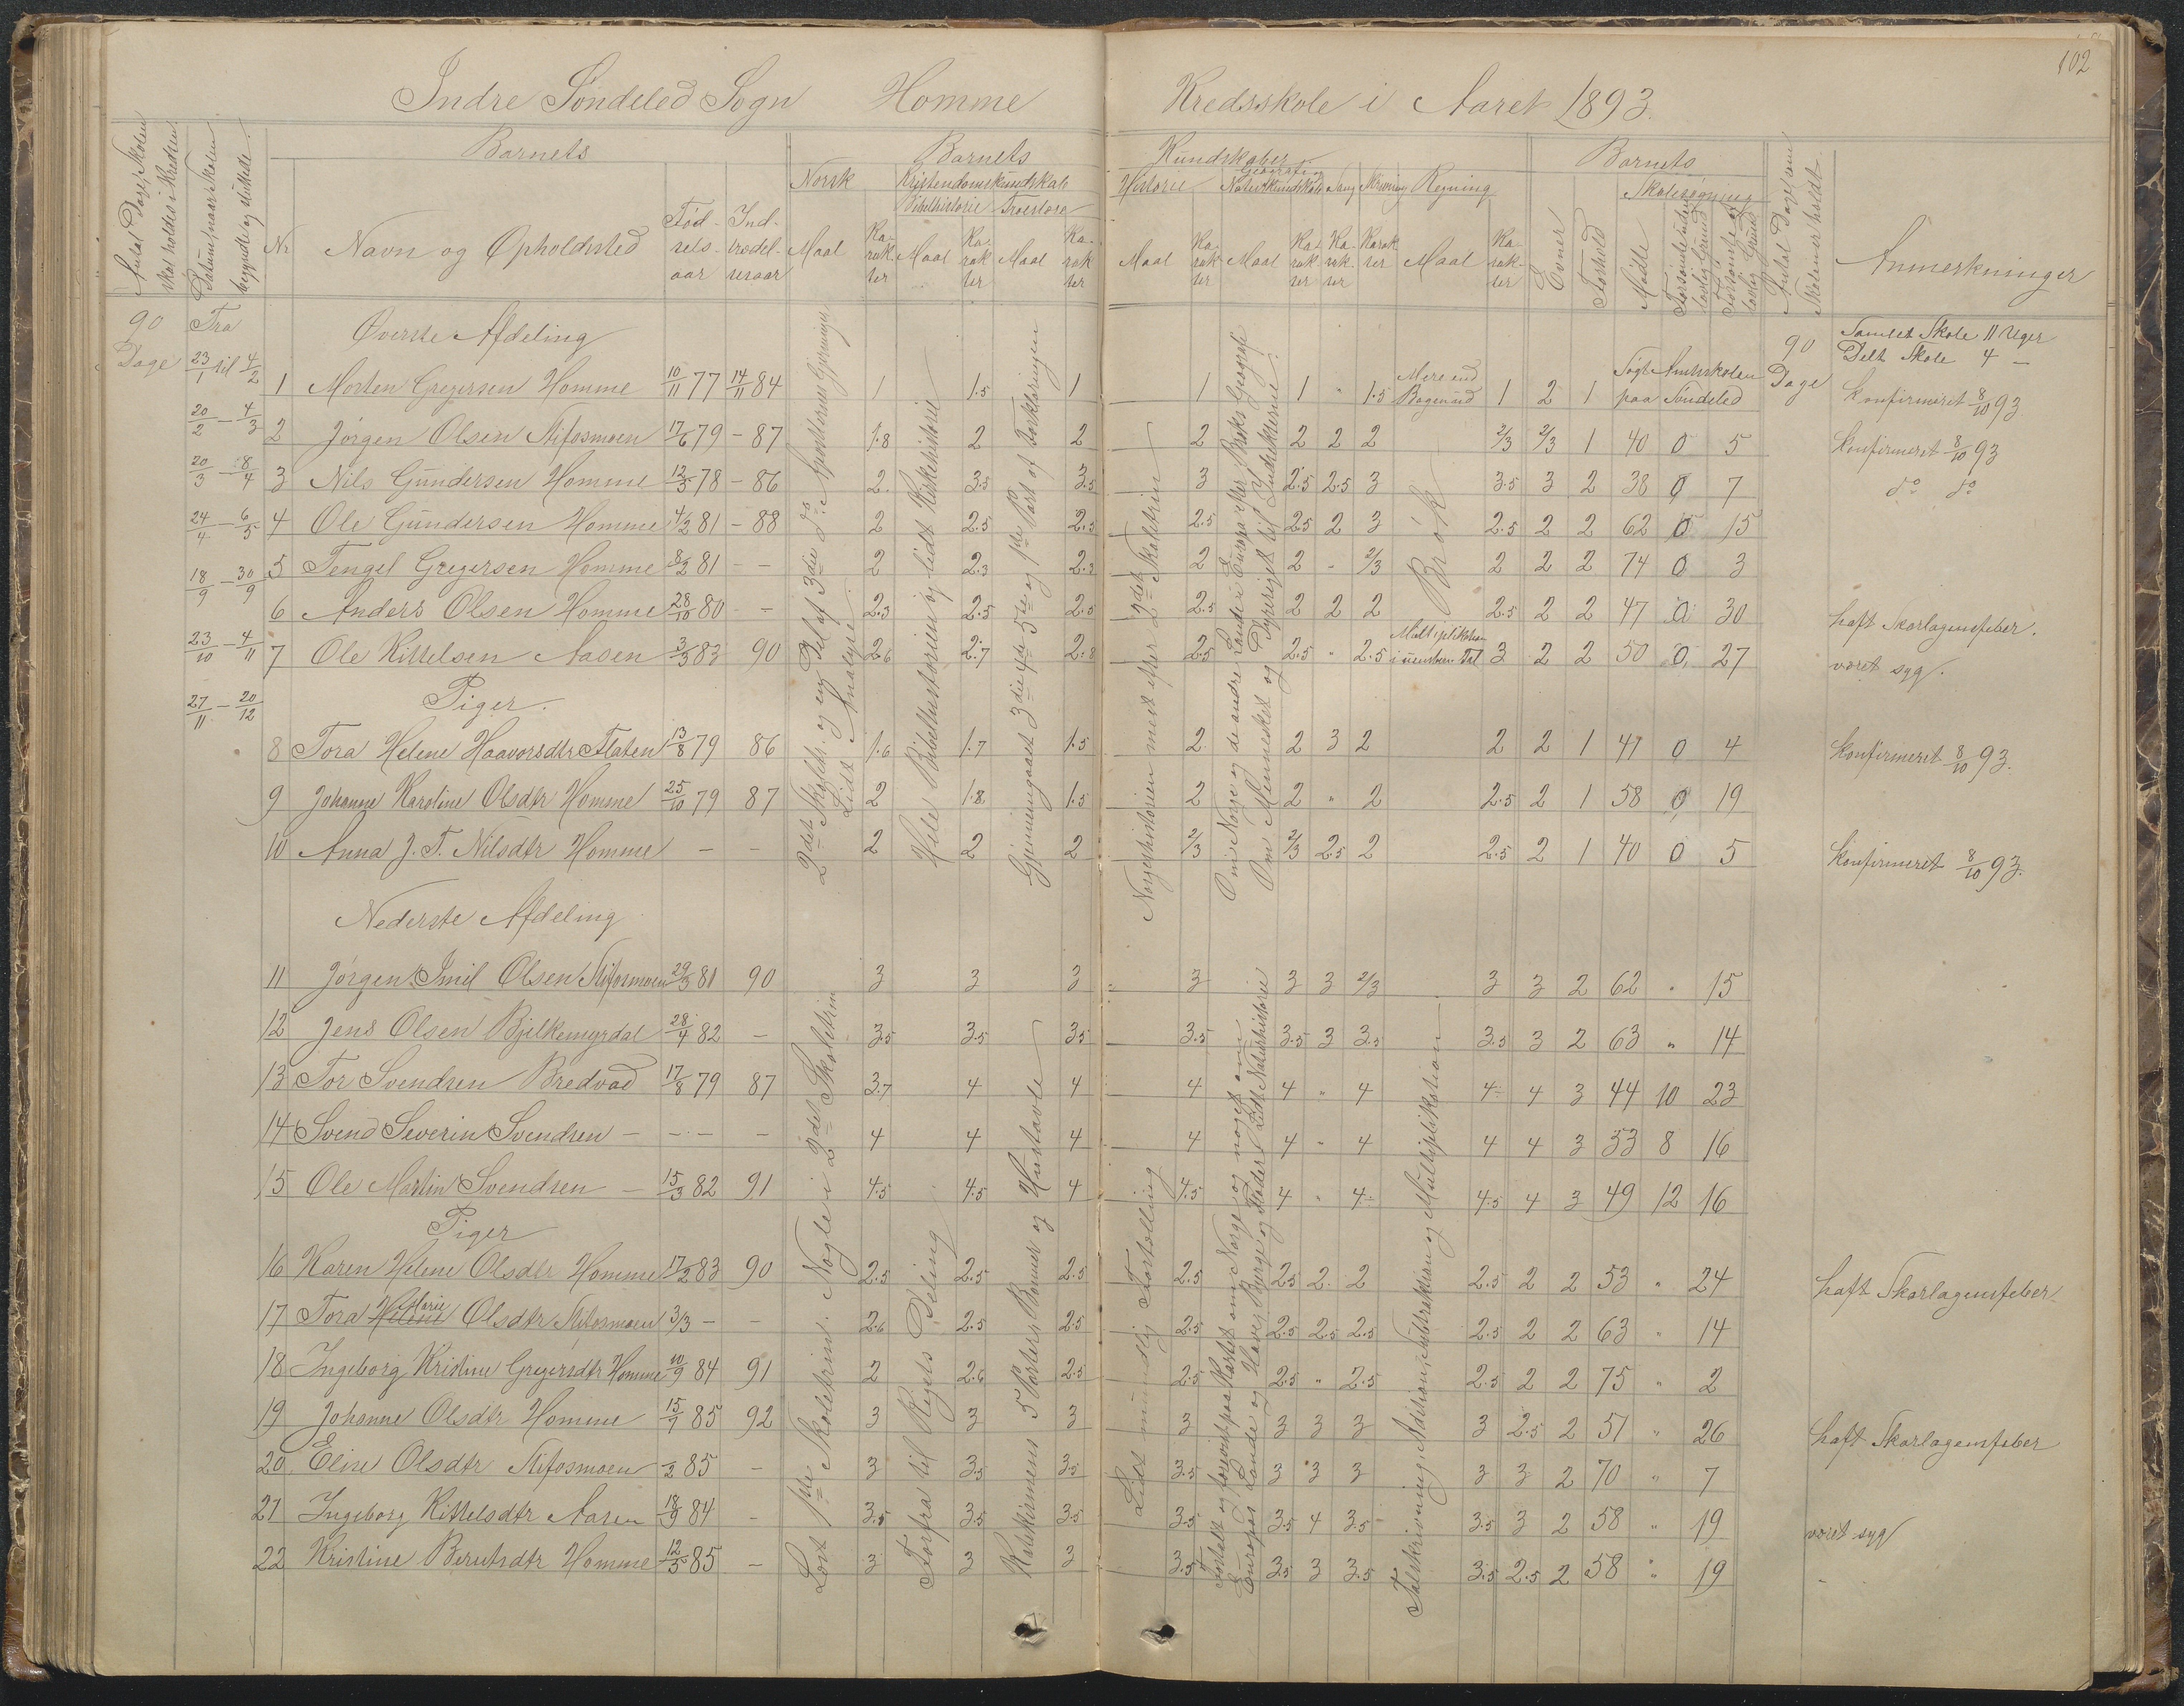 102
Indre Søndeled Sogn Homme Kredsskole i Aaret 1893.
Antal Dage, Skolen skal holdes i Kredsen.
Datum, naar Skolen begyndte og sluttede.
Barnets
Nr
Navn og Opholdssted
Fødselsaar
Indtrædelsesaar
Barnets Kundskaber
Norsk
Maal
Karakter
Kristendomskundskab
Bibelhistorie
Maal
Karakter
Troeslære
Maal
Karakter
Historie
Maal
Karakter
Geografi og Naturkundskab
Maal
Karakter
Sang
Karakter
Skrivning
Karakter
Regning
Maal
Karakter
Barnets
Evner
Forhold
Skolesøgning
Mødte
Forsømte uden lovlig Grund
Forsømte af lovlig Grund
Antal Dage som Skolen er holdt.
Anmerkninger
90 Dage
Fra
23/1 til 4/2
20/2 — 4/3
20/3 — 8/4
24/4 — 6/5
18/9 — 30/9
23/10 — 4/11
27/11 — 20/12
90 Dage
Samlet Skole 11 Uger
Delt Skole 4 —
Øverste Afdeling
1 Morten Gregersen Homme 10/11 77 14/11 84 1 1.5 1 1 1 " 1.5 Mere end Bogen ud 1 2 1 Søgt Amtsskolen paa Søndeled konfirmeret 8/10 93
2 Jørgen Olsen Stifosmoen 17/6 79 – 87 1.8 2 2 2 2 2 2 2/3 2/3 1 40 0 5 konfirmeret 8/10 93
3 Nils Gundersen Homme 12/5 78 – 86 2. 3.5 3.5 3 2.5 2.5 3 3.5 3 2 38 0 7 do do
4 Ole Gundersen Homme 4/2 81 – 88 2 2.5 2.5 2.5 2.5 2 3 2.5 2 2 62 0 15
5 Tengel Gregersen Homme 8/2 81 – – 2 2.3 2.3 2 2 " 2/3 2 2 2 74 0 3
6 Anders Olsen Homme 28/10 80 – 2.3 2.5 2.5 2.5 2 2 2 2.5 2 2 47 0 30 haft Skarlagensfeber.
7 Ole Kittelsen Aasen 3/3 83 90 2.6 2.7 2.8 2.5 2.5 " 2.5 Multiplikation i uensben. Tal 3 2 2 50 0 27 været syg.
Piger.
8 Tora Helene Haavorsdtr Flaten 13/8 79 86 1.6 1.7 1.5 2 2 3 2 2 2 1 41 0 4 konfirmeret 8/10 93.
9 Johanne Karoline Olsdtr Homme 25/10 79 87 2 1.8 1.5 2 2 " 2 2.5 2 1 58 0 19
10 Anna J. T. Nilsdtr Homme – – 2 2 2 2/3 2/3 2.5 2 2.5 2 1 40 0 5 konfirmeret 8/10 93.
2det Skoletr. og en Del af 3die do. Ajourførelse Gjennemgaaet Lidt Analyse.
Hele Bibelhistorien og lidt Kirkehistorie
Gjennemgaaet 3die 4de 5te og 1ste Part af Forklaringen
Norgeshistorien mest efter 2det Skoletrin
Om Norge og de andre Lande i Europa efter Geografi
Om Mennesket og Dyreriget til Insekterne.
Brøk
Nederste Afdeling
11 Jørgen Emil Olsen Stifosmoen 29/3 81 90 3 3 3 3 3 3 2/3 3 3 2 62 " 15
12 Jens Olsen Bjelkemyrdal 28/4 82 – 3.5 3.5 3.5 3.5 3.5 3 3.5 3.5 3 2 63 " 14
13 Tor Svendsen Bredvad 17/8 79 87 3.7 4 4 4 4 " 4 4 4 3 44 10 23
14 Svend Severin Svendsen – – – – 4 4 4 4 4 " 4 4 4 3 53 8 16
15 Ole Martin Svendsen – 15/3 82 91 4.5 4.5 4 4.5 4 " 4 4.5 4 3 49 12 16
Piger
16 Karen Helene Olsdtr Homme 17/2 83 90 2.5 2.5 2.5 2.5 2.5 2 2 2.5 2 2 53 " 24 haft Skarlagensfeber
17 Tora Helene Marie Olsdtr Stifosmoen 3/3 – – 2.6 2.5 2.5 2.5 2.5 2.5 2.5 2.5 2 2 63 " 14
18 Ingeborg Kristine Gregersdtr Homme 10/9 84 91 2 2.6 2.5 2.5 2.5 " 2.5 2.5 2 2 75 " 2
19 Johanne Olsdtr Homme 15/1 85 92 3 3 3 3 3 3 3 3 2.5 2 51 " 26 haft Skarlagensfeber
20 Eline Olsdtr Stifosmoen /2 85 – 3 3.5 3.5 3.5 3 3 3 3 3 2 70 " 7
21 Ingeborg Kittelsdtr Aasen 18/9 84 – 3.5 3.5 3.5 3.5 3.5 4 3.5 3.5 3 2 58 " 19 været syg
22 Kristine Berntsdtr Homme 12/5 85 – 3 3 3 3.5 3.5 3 3.5 3.5 2.5 2 58 " 19 –
Læst 1ste Skoletrin. Nogle i 2det Skoletrin
Forfra til Rigets Deling
Katekismens 5 Parter, Bønner og Hustavle
Lidt mundtlig Fortælling
Fortalt og forevist paa Kartet om Norge og noget om
Europas Lande og Haver, Bjerge og Floder. Lidt Naturhistorie
Talskrivning, Addition, Subtraktion og Multiplikation